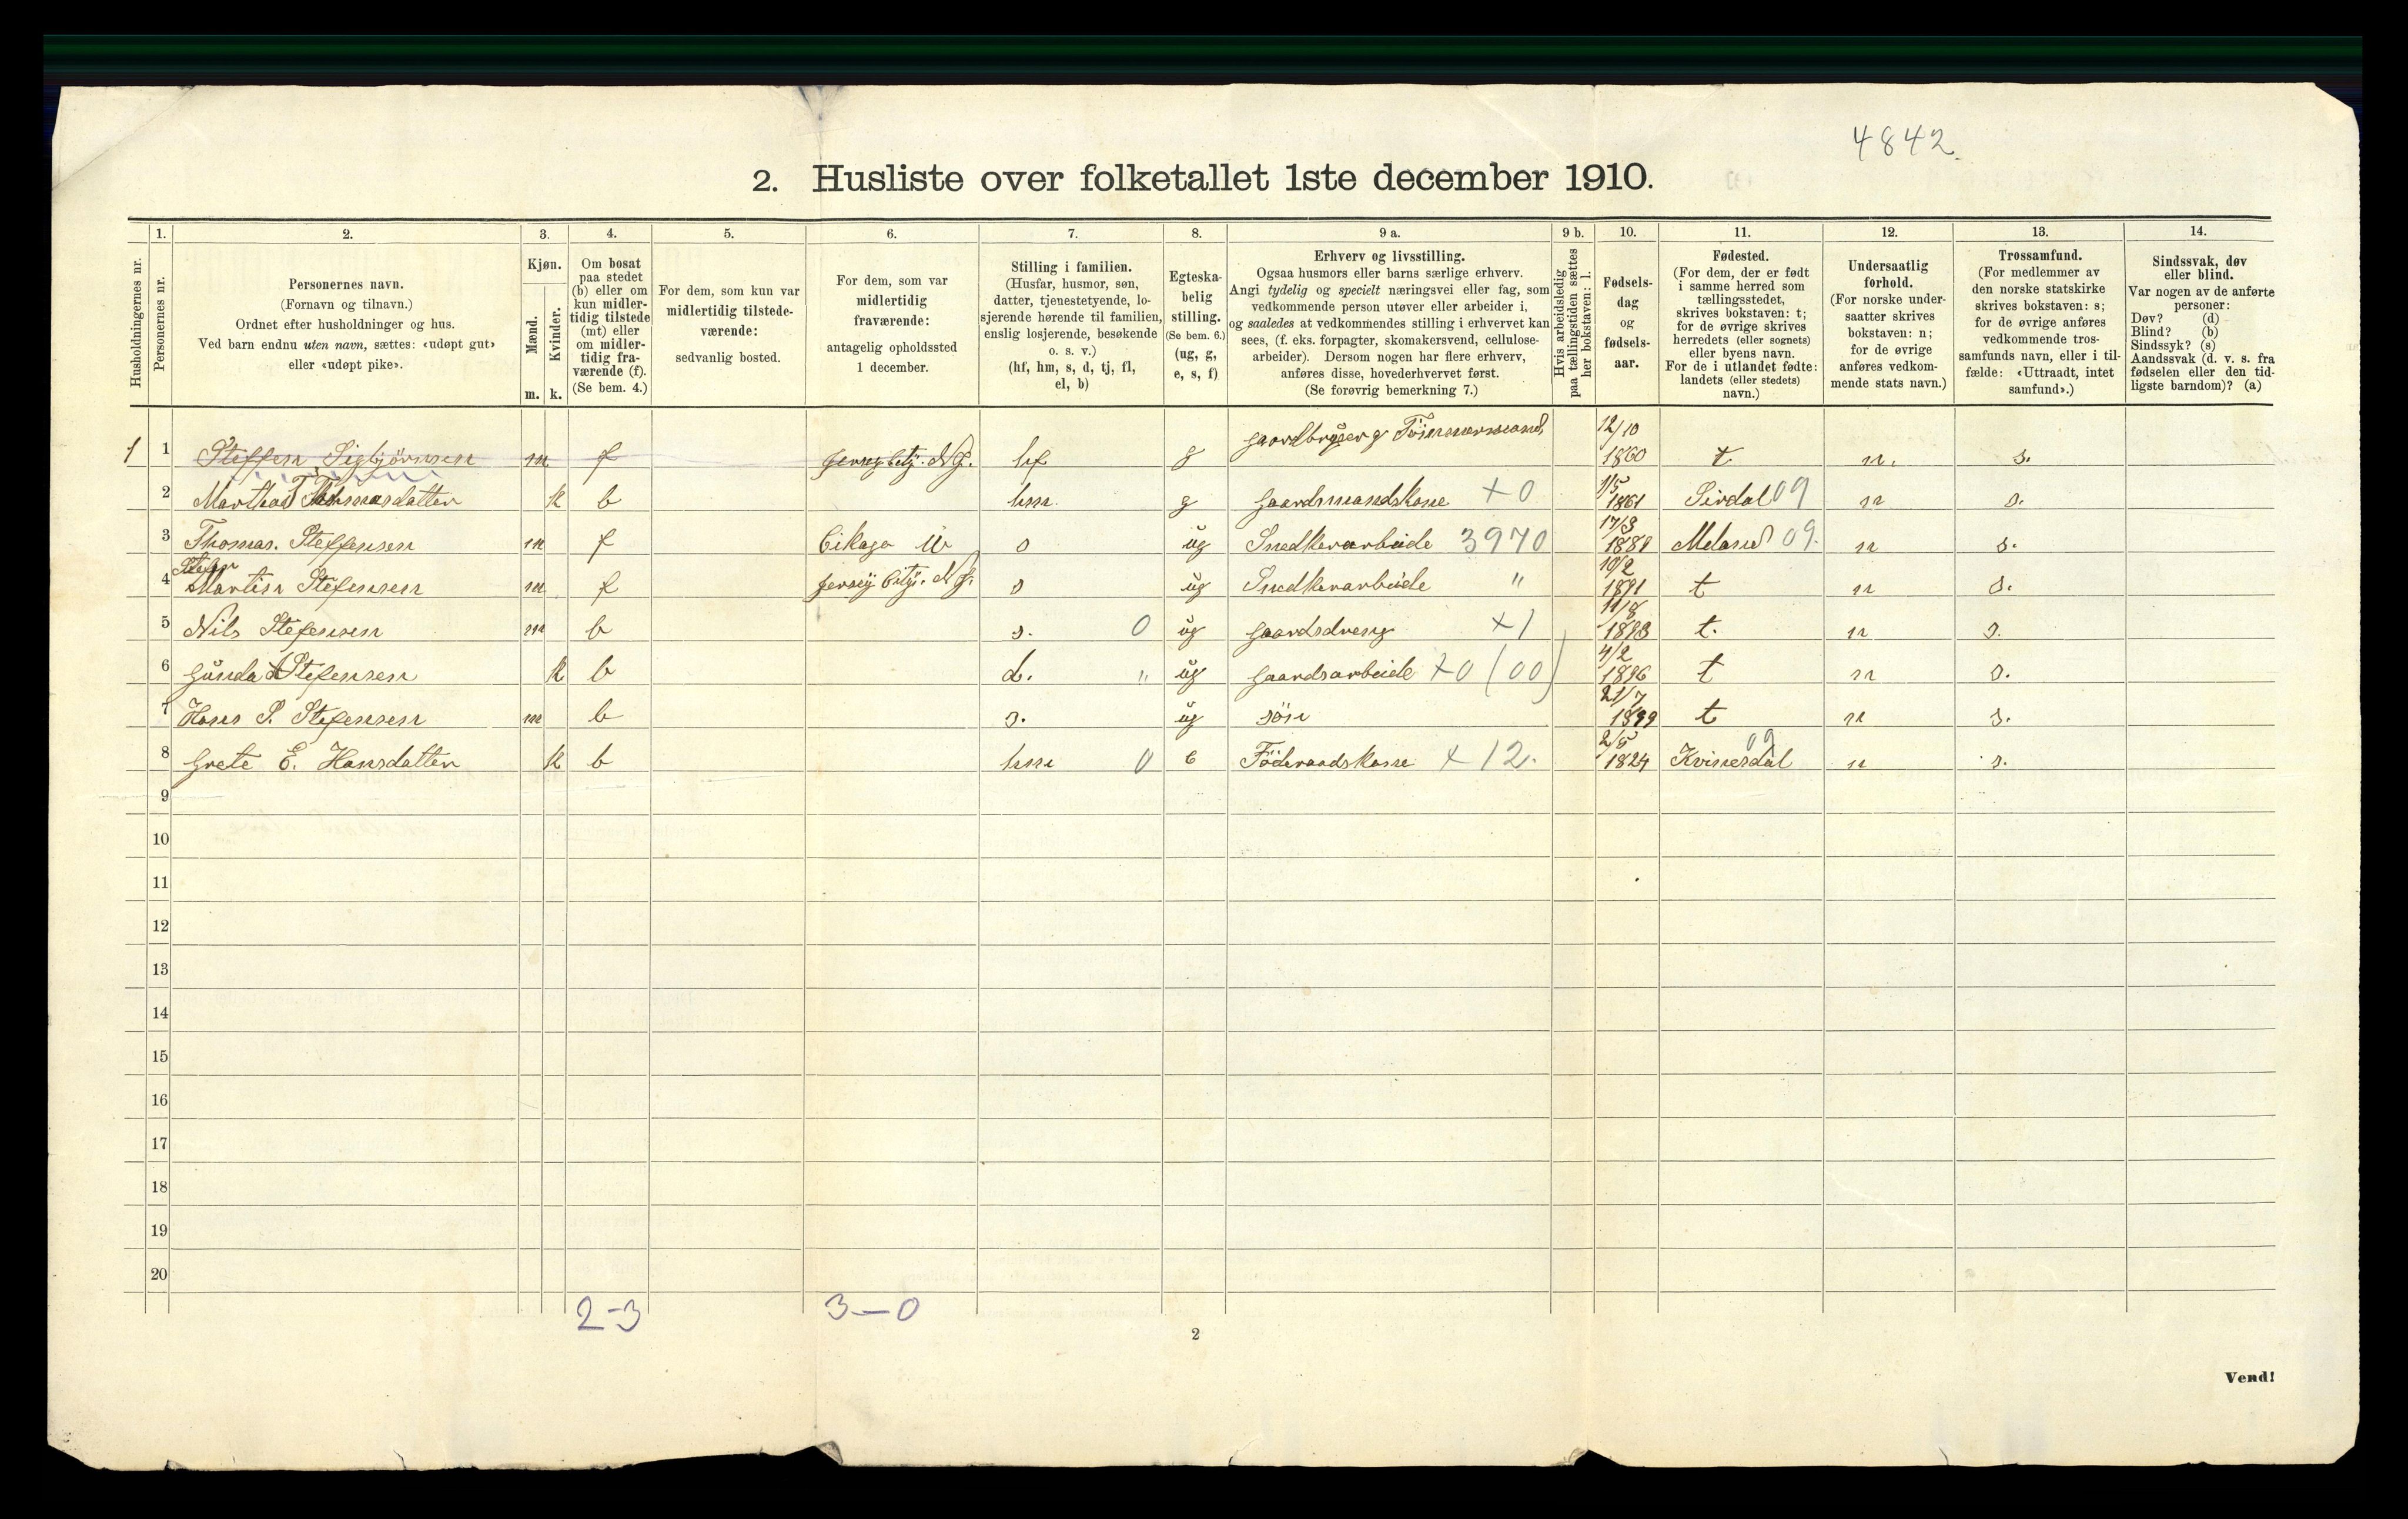 4842.
2. Husliste over folketallet 1ste december 1910.
1. 2. 3. 4. 5. 6. 7. 8. 9 a. 9 b. 10. 11. 12. 13. 14.
Husholdningernes nr.
Personernes nr.
Personernes navn.
(Fornavn og tilnavn.)
Ordnet efter husholdninger og hus.
Ved barn endnu uten navn, sættes: «udøpt gut»
eller «udøpt pike».
Kjøn.
Mænd.
Kvinder.
m. k.
Om bosat
paa stedet
(b) eller om
kun midler-
tidig tilstede
(mt) eller
om midler-
tidig fra-
værende (f).
(Se bem. 4.)
For dem, som kun var
midlertidig tilstede-
værende:
sedvanlig bosted.
For dem, som var
midlertidig
fraværende:
antagelig opholdssted
1 december.
Stilling i familien.
(Husfar, husmor, søn,
datter, tjenestetyende, lo-
sjerende hørende til familien,
enslig losjerende, besøkende
o. s. v.)
(hf, hm, s, d, tj, fl,
el, b)
Egteska-
belig
stilling.
(Se bem. 6.)
(ug, g,
e, s, f)
Erhverv og livsstilling.
Ogsaa husmors eller barns særlige erhverv.
Angi tydelig og specielt næringsvei eller fag, som
vedkommende person utøver eller arbeider i,
og saaledes at vedkommendes stilling i erhvervet kan
sees, (f. eks. forpagter, skomakersvend, cellulose-
arbeider). Dersom nogen har flere erhverv,
anføres disse, hovederhvervet først.
(Se forøvrig bemerkning 7.)
Hvis arbeidsledig
paa tællingstiden sættes
her bokstaven: l.
Fødsels-
dag
og
fødsels-
aar.
Fødested.
(For dem, der er født
i samme herred som
tællingsstedet,
skrives bokstaven: t;
for de øvrige skrives
herredets (eller sognets)
eller byens navn.
For de i utlandet fødte:
landets (eller stedets)
navn.)
Undersaatlig
forhold.
(For norske under-
saatter skrives
bokstaven: n;
for de øvrige
anføres vedkom-
mende stats navn.)
Trossamfund.
(For medlemmer av
den norske statskirke
skrives bokstaven: s;
for de øvrige anføres
vedkommende tros-
samfunds navn, eller i til-
fælde: «Uttraadt, intet
samfund».)
Sindssvak, døv
eller blind.
Var nogen av de anførte
personer:
Døv? (d)
Blind? (b)
Sindssyk? (s)
Aandssvak (d. v. s. fra
fødselen eller den tid-
ligste barndom)? (a)
1 1 Steffen Sigbjörnsen m f Jersey City. N J. hf g Gaardbruger g Tömmermand 12/10 1860 t n. s.
2 Martha T Tomasdatter k b hm. g Gaardmandskone +0 1/5 1861 Sirdal 09 n s.
3 Thomas. Steffensen m f Cikago s ug Snedkerarbeide 3970 17/3 1889 Meland 09. n s.
4 Martin Stefensen m f Jersey City. N J. s ug Snedkerarbeide " 10/2 1891 t n s.
5 Nils Stefensen m b s. 0 ug Gaardsdreng +1 11/8 1893 t. n s.
6 Gunda Stefensen k b d. " ug Gaardsarbeide +0 (00) 4/2 1896 t n s.
7 Hans S. Stefensen m b s. ug sön 21/7 1899 t n s.
8 Grete E. Hansdatter k b hm 0 e Föderaadskone +12. 2/5 1824 Kvinesdal 09 n s.
9
10
11
12
13
14
15
16
17
18
19
20
2-3 3-0
2
Vend!